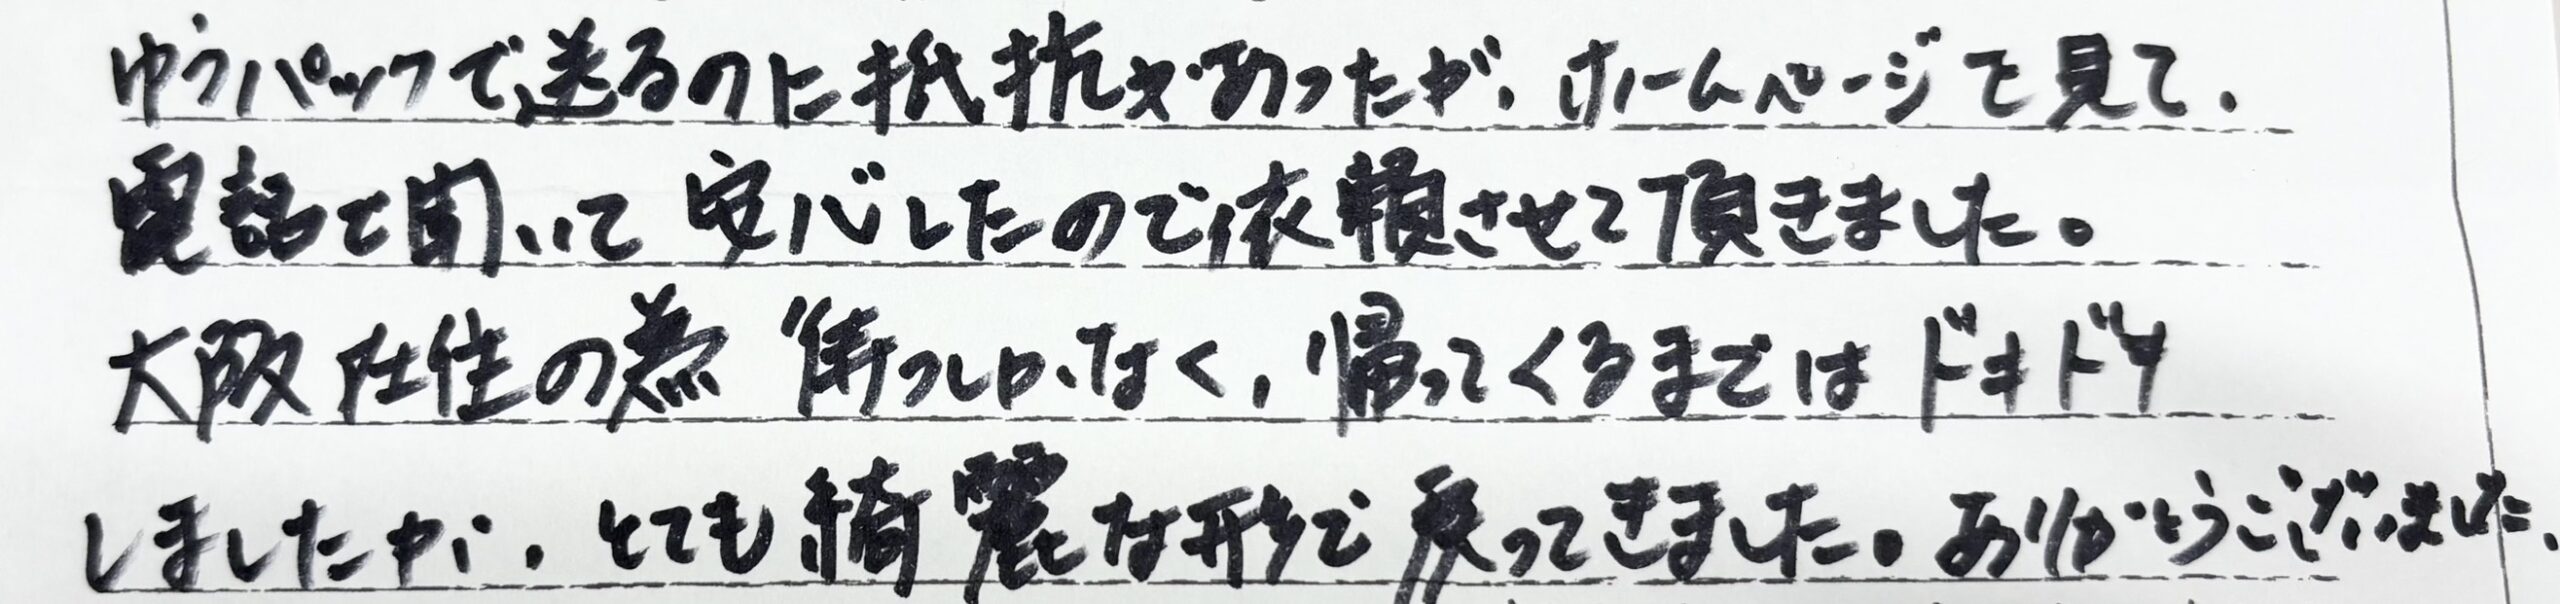 ゆうパックで送るのに抵抗があったが、ホームページを見て、
電話を聞いて安心したので依頼させて頂きました。
大阪在住の為待つしかなく、帰ってくるまではドキドキ
しましたが、とても綺麗な形で戻ってきました。ありがとうございました。